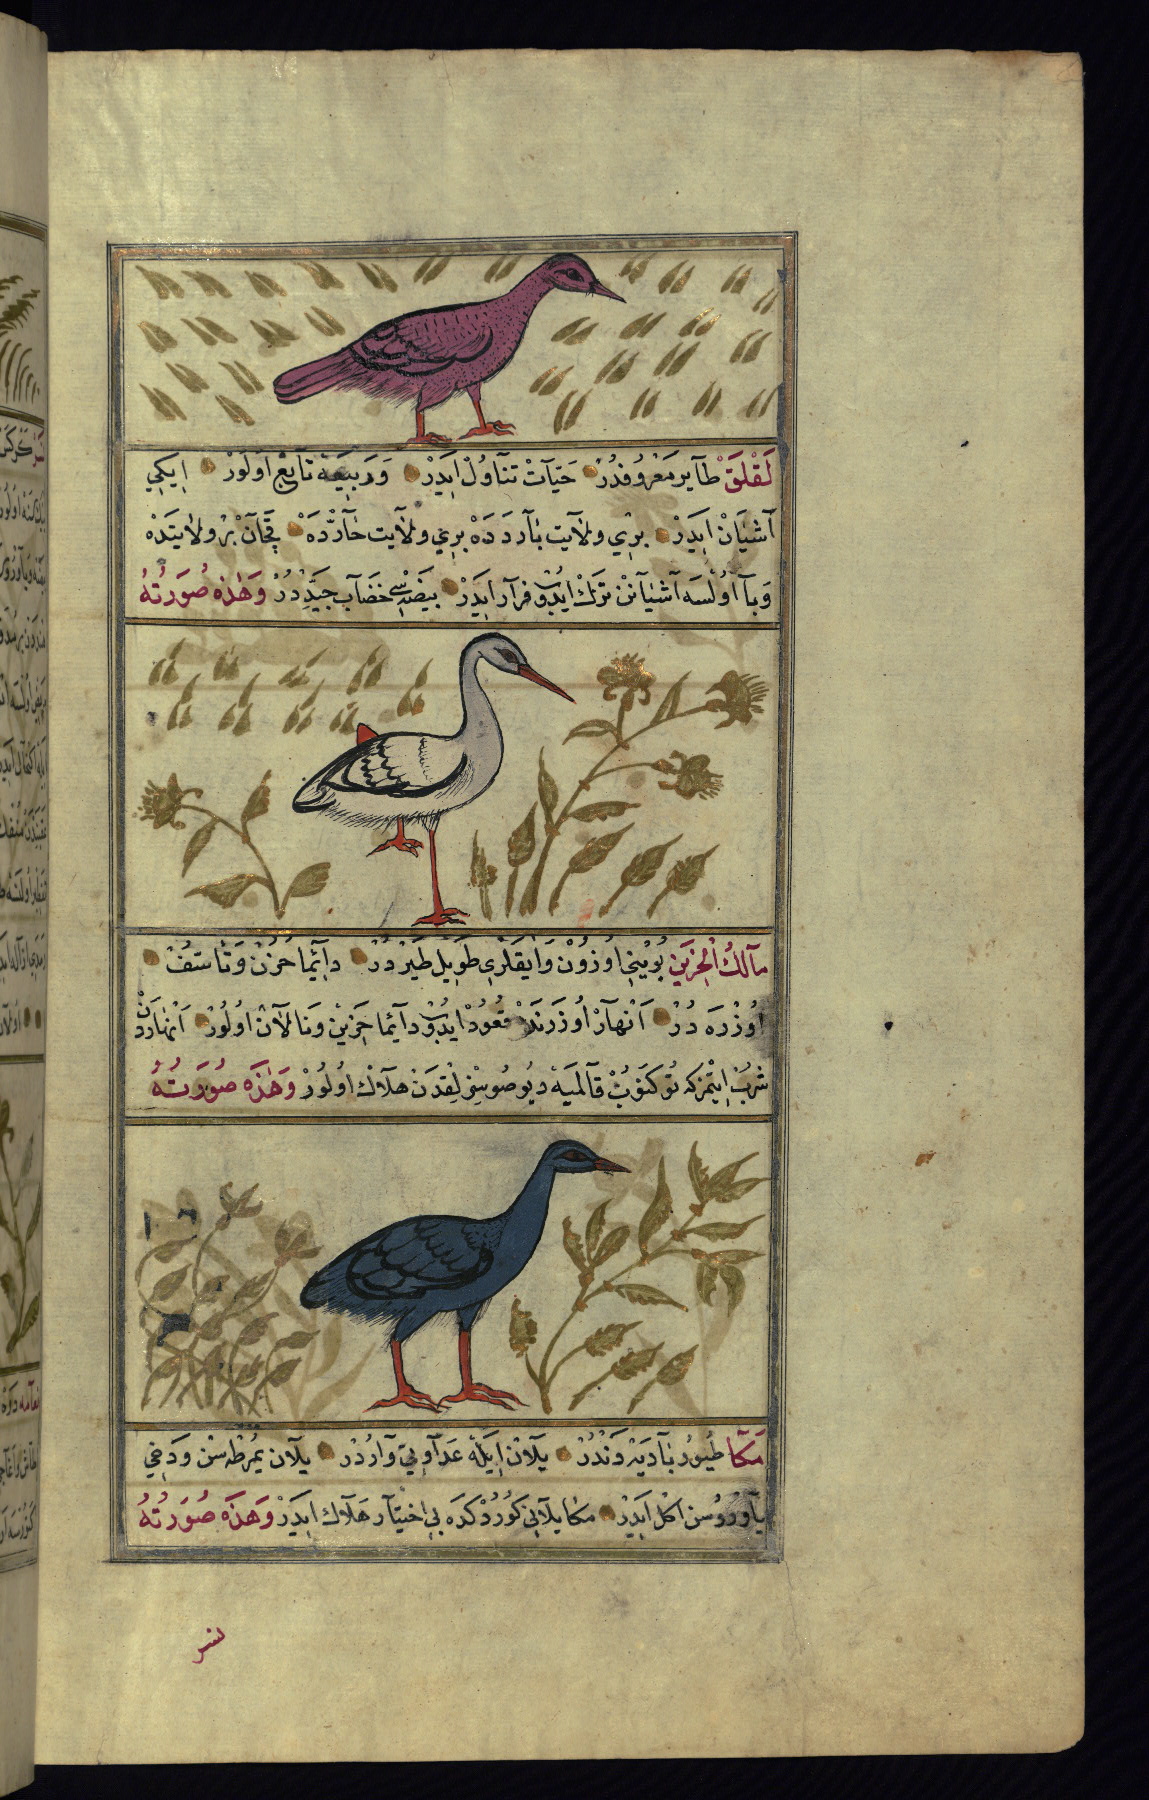 لَقْلَقْ طَآير مَعْرُوفدُرْ حَيَآتْ تَنَاوُلْ اِيَدرْ وَرَبِيعَهْ تَابِعْ اُولُورْ اِيكِي
آشيَانْ اِيَدرْ بِرِي وِلَايتِ بَارِدَدَهْ بِرِي وِلَايت حَارَّدَهْ قَچَانْ بِرْ ولَايتدَهْ
وَبَا اُولْسَه آشيَانِنْ تَرْكْ ايدُوبْ فِرَار اِيَدرْ بَيضَهسِي خضَاب جَيِّددُرْ وَهٰذِهِ صُورَتُهُ
مَالِكُ الْحَزِينْ بُوينِي اُوزُونْ وَايَقلَرِي طَوِيل طَيْردرْ دَائِمَا حُزُنْ وَتَأسّفْ
اُوزْرَه دُرْ اَنْهَارْ اُوزَرنَدَهْ قعُودْ ايدُوبْ دَائِما حَزِينْ وَنَالَانْ اُولُورْ اَنْهَاردَنْ
شُربْ اِيتْمز كه توكنُوبْ قَالميَهْ ديُو صُوسِزلِقدَنْ هَلَاكْ اُولُورْ وَهٰذَه صُورَتُهُ
مَكَّا طُيُورِ بَادِيَهْ دَنْدُرْ يِلَانْ اِيَلَهْ عَدَاوتِي وَارْدُرْ يِلَان يُمُرطَهسنْ وَدَخِي
يَاورُوسِن اَكلْ اِيَدرْ مكا يلَانِي كُورْدُكدَه بِي اِختيَار هَلَاك اِيَدرْ وَهٰذَه صُورَتُهُ
نسر